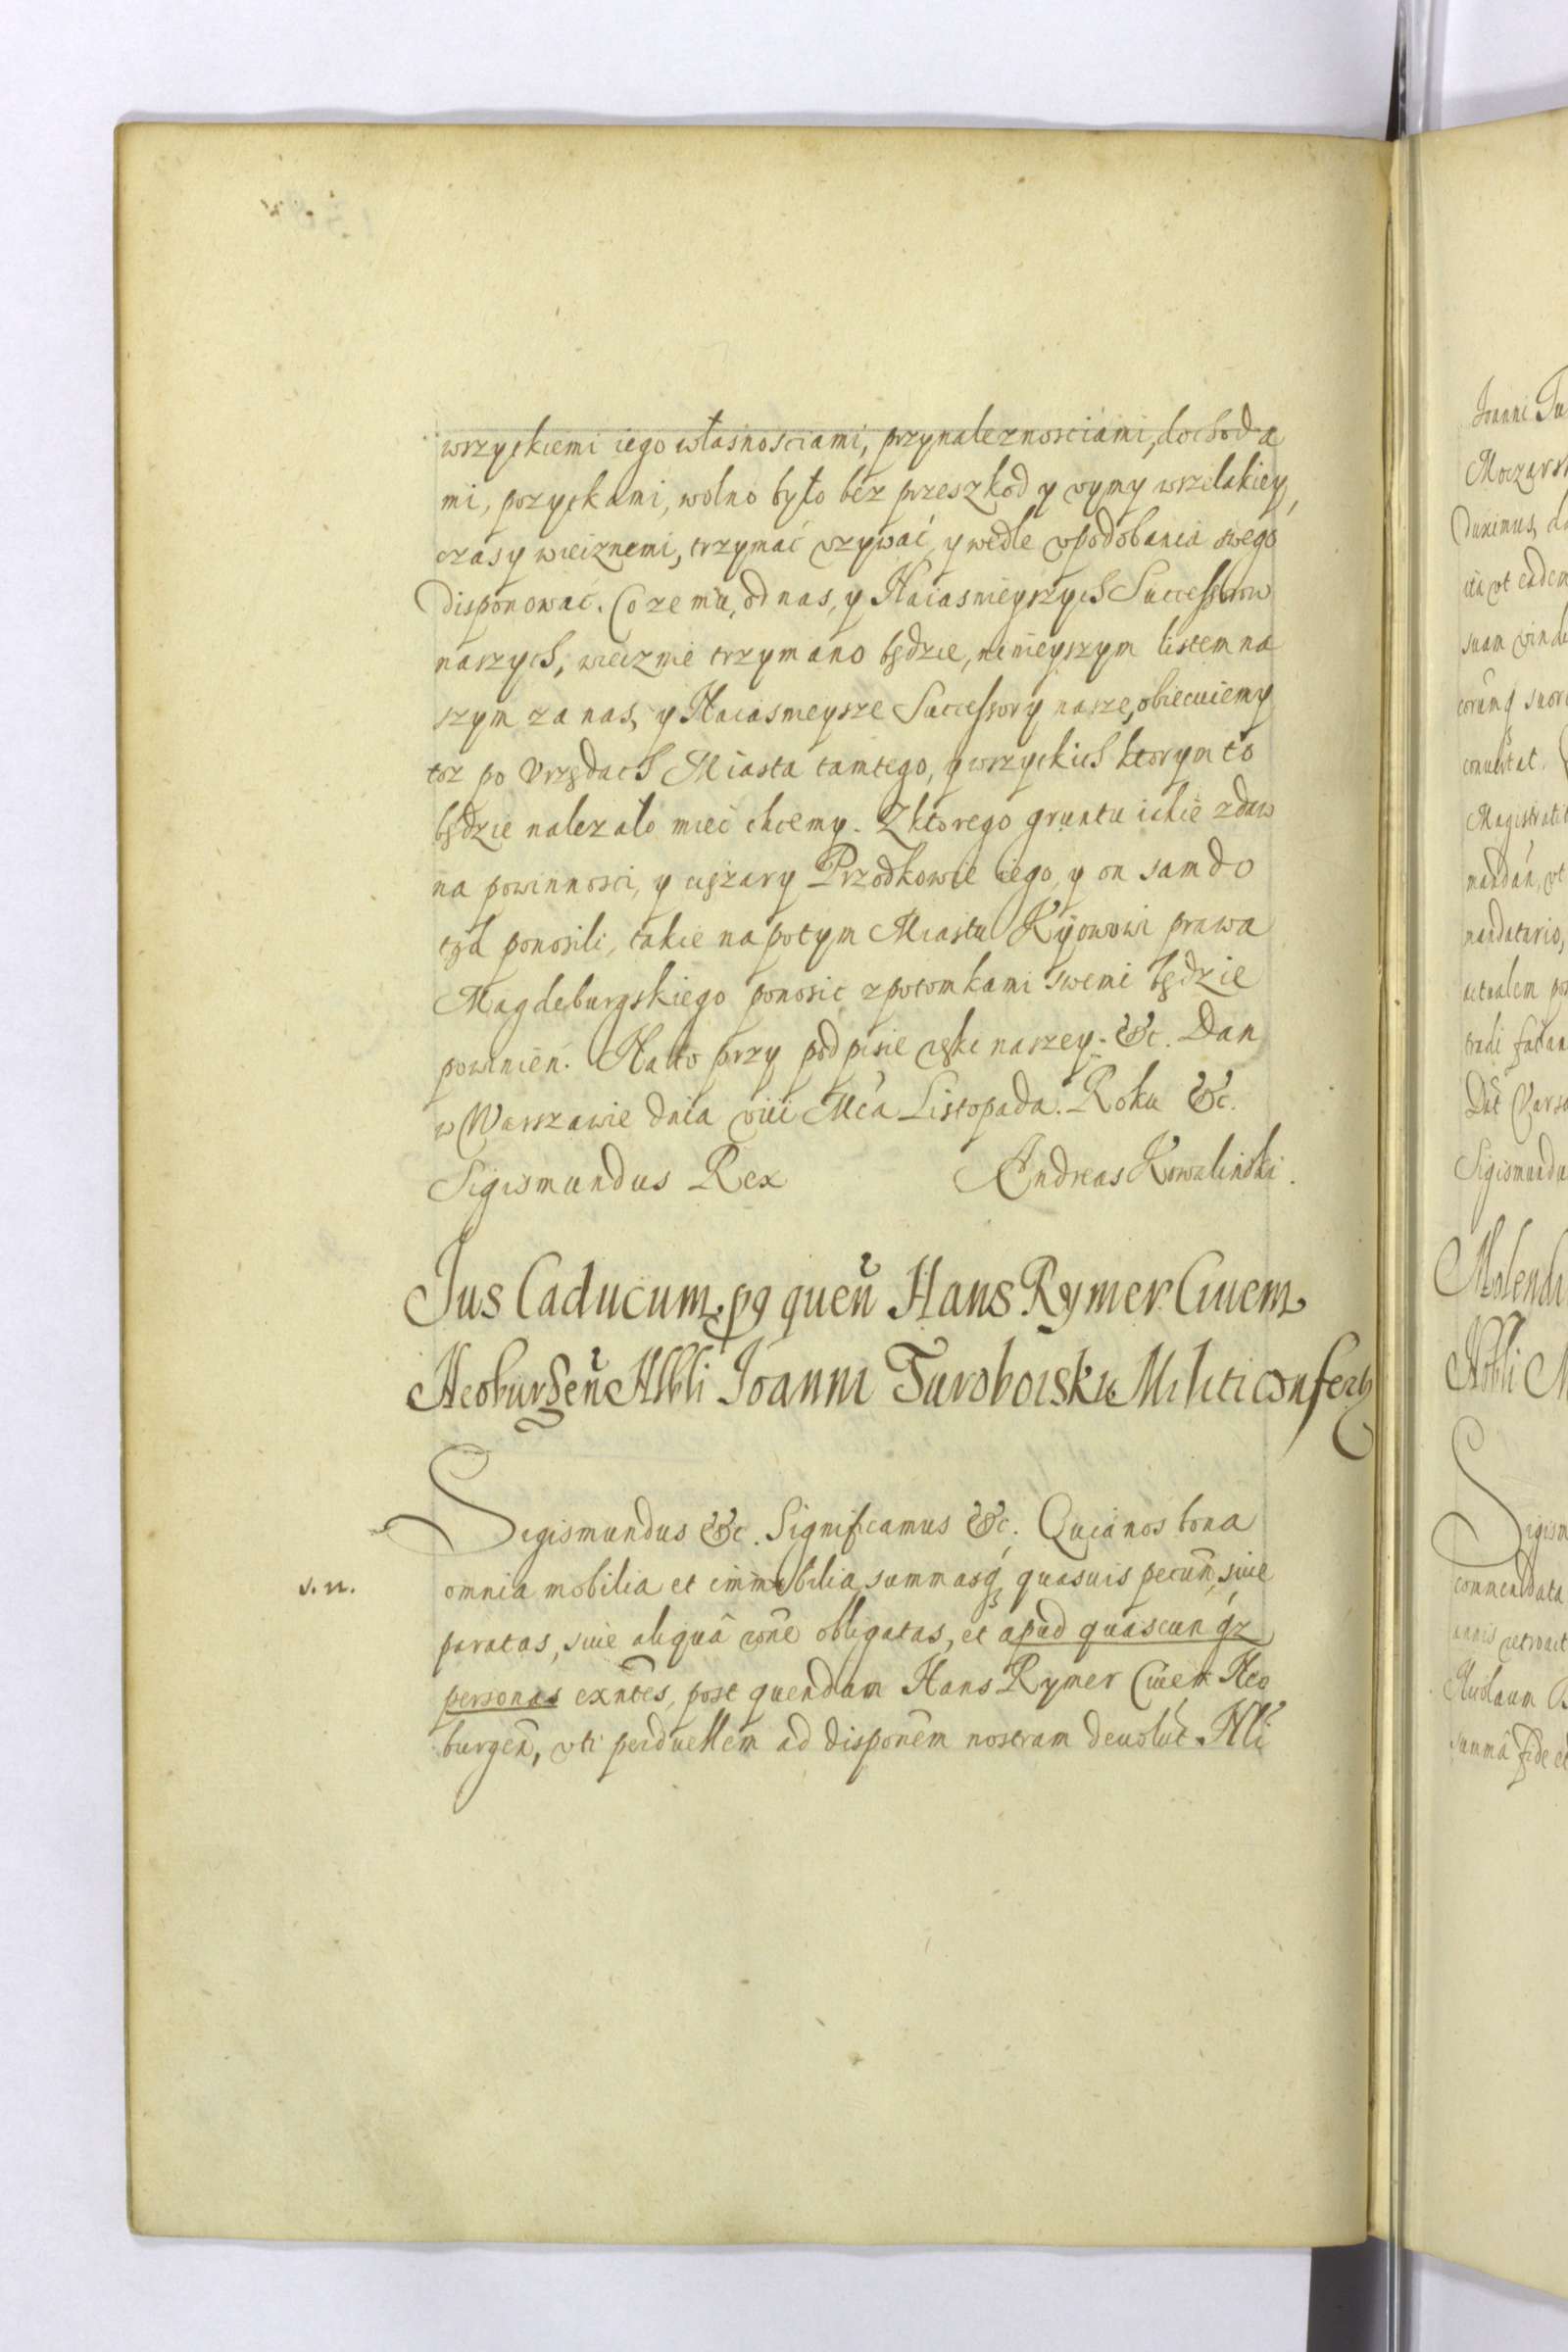 wszyſtkiemi iego własnosciami, przynaleznosciami, dochoda
mi, pozyſtkami, wolno było bez przeszkod y vymy wszelakiey,
czasy wieiznemi, trzymać vzywać y wedle vpodobania swego
disponować. Co ze mu, od nas, y Naiasnieyszych Successorow
naszych, wiecznie trzymano będzie, ninieyszym listem na
szym za nas, y Naiasnieysze Successory nasze, obiecuiemy
toz po Vrzędach Miasta tamtego, y wszyſtkich ktorym to
będzie nalezało mieć chcemy. Z ktorego gruntu iakie zdaw
na powinnosci, y ciężary Przodkowie iego, y on sam do
tąd ponosili, takie napotym Miastu Kyowowi prawa
Magdeburgskiego ponosic z potomkami swemi będzie
powinien. Na to przy podpisie ręki naszey. &c. Dan
w Warszawie dnia viii Mca Listopada. Roku &c.
Sigismundus Rex Andreas Kowalinski.
Jus Caducum pq quen̄ Hans Rymer Ciuem
Neoburgen̄ Nbli Joanni Turoboiski Militi confertr
Sigismundus &c. Significamus &c. Quia nos bona
s. n.
omnia mobilia et immobilia, summasq́ quasuis pecun̄, siue
paratas, siue aliquâ rōne obligatas, et apud quascunq́z
personas exn̄tes, post quendam Hans Rymer Ciuem Neo
burgen̄, vti perduellem ad disponēm nostram deuolut. Nli
Joanni Tu
Moczarsk
duximus, d
ita vt eadem
suam vind
corumq́ suor
conuertat.
Magistratib
mandan̄, vt
mandatario,
actualem po
tradi facian
Dat̄ Varso
Sigismundu
Molendi
Nobli M
Sigism
commendata
annis
Nicolaum
summâ fide et